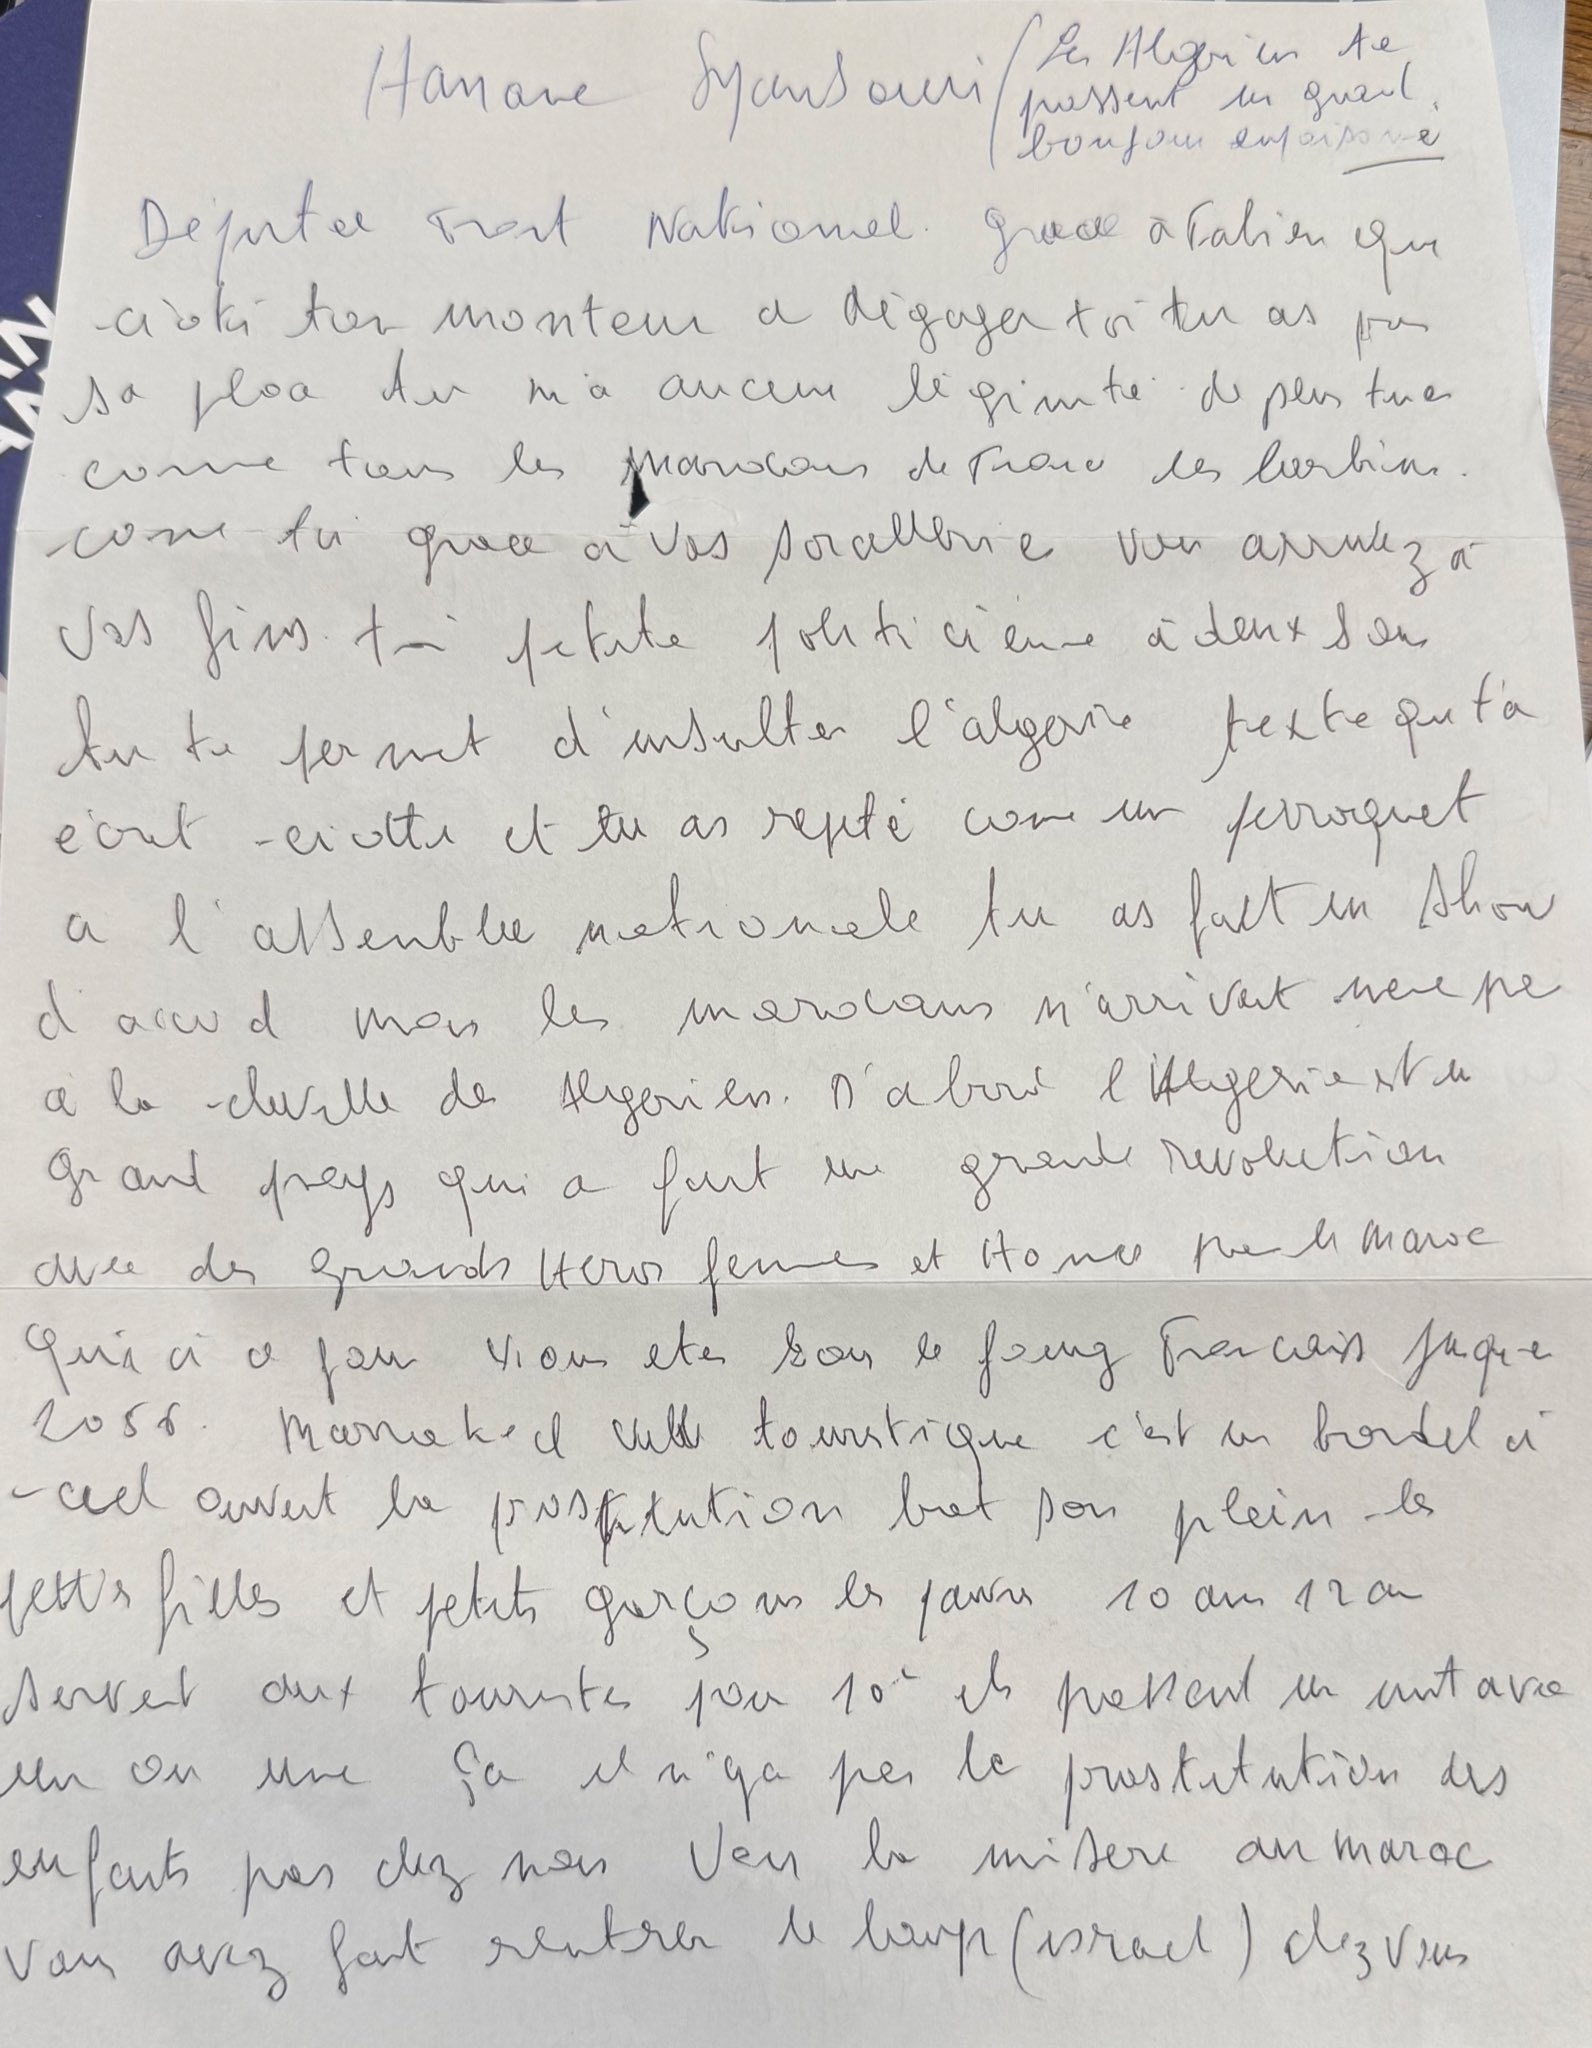 Hanane Mansouri (Les Algerien te
passent un grand
bonjour enpoisoné
Députée Front National. grace à Fabien que
ciotti ton monteur a dégager toi tu as pas
sa place tu n'a aucune légimité de plus tu es
comme tous les Marocains de France des larbins.
come toi grace à vos soralleries vous arrivez à
vos fins. toi petite politiciènne à deux sous
tu te permet d'insulter l'algerie texte qu t'a
écrit ciotti et tu as repté come un perroquet
a l'assemblée nationale tu as fait un Show
d'accord mais les marocains n'arrivent meme pas
à la cheville des Algeriens. D'abord l'Algerie est un
Grand pays qui a fait une grande revolution
avec des grands Heros femmes et Homes pas le Maroc
Qui à ce jour vous etes sous le joung Francais jusque
2056. Marrakech ville touristique c'est un bordel à
ciel ouvert la prostitution bat son plein les
petits filles et petits garçons les pauvres 10 ans 12 an
servent aux touristes pour 10€ ils passent un nuit avec
un ou une Ça il n'ya pas le prostitution des
enfants pas chez nous Vous la misere au maroc
vous avez fait rentrer le loup (israel) chez vous